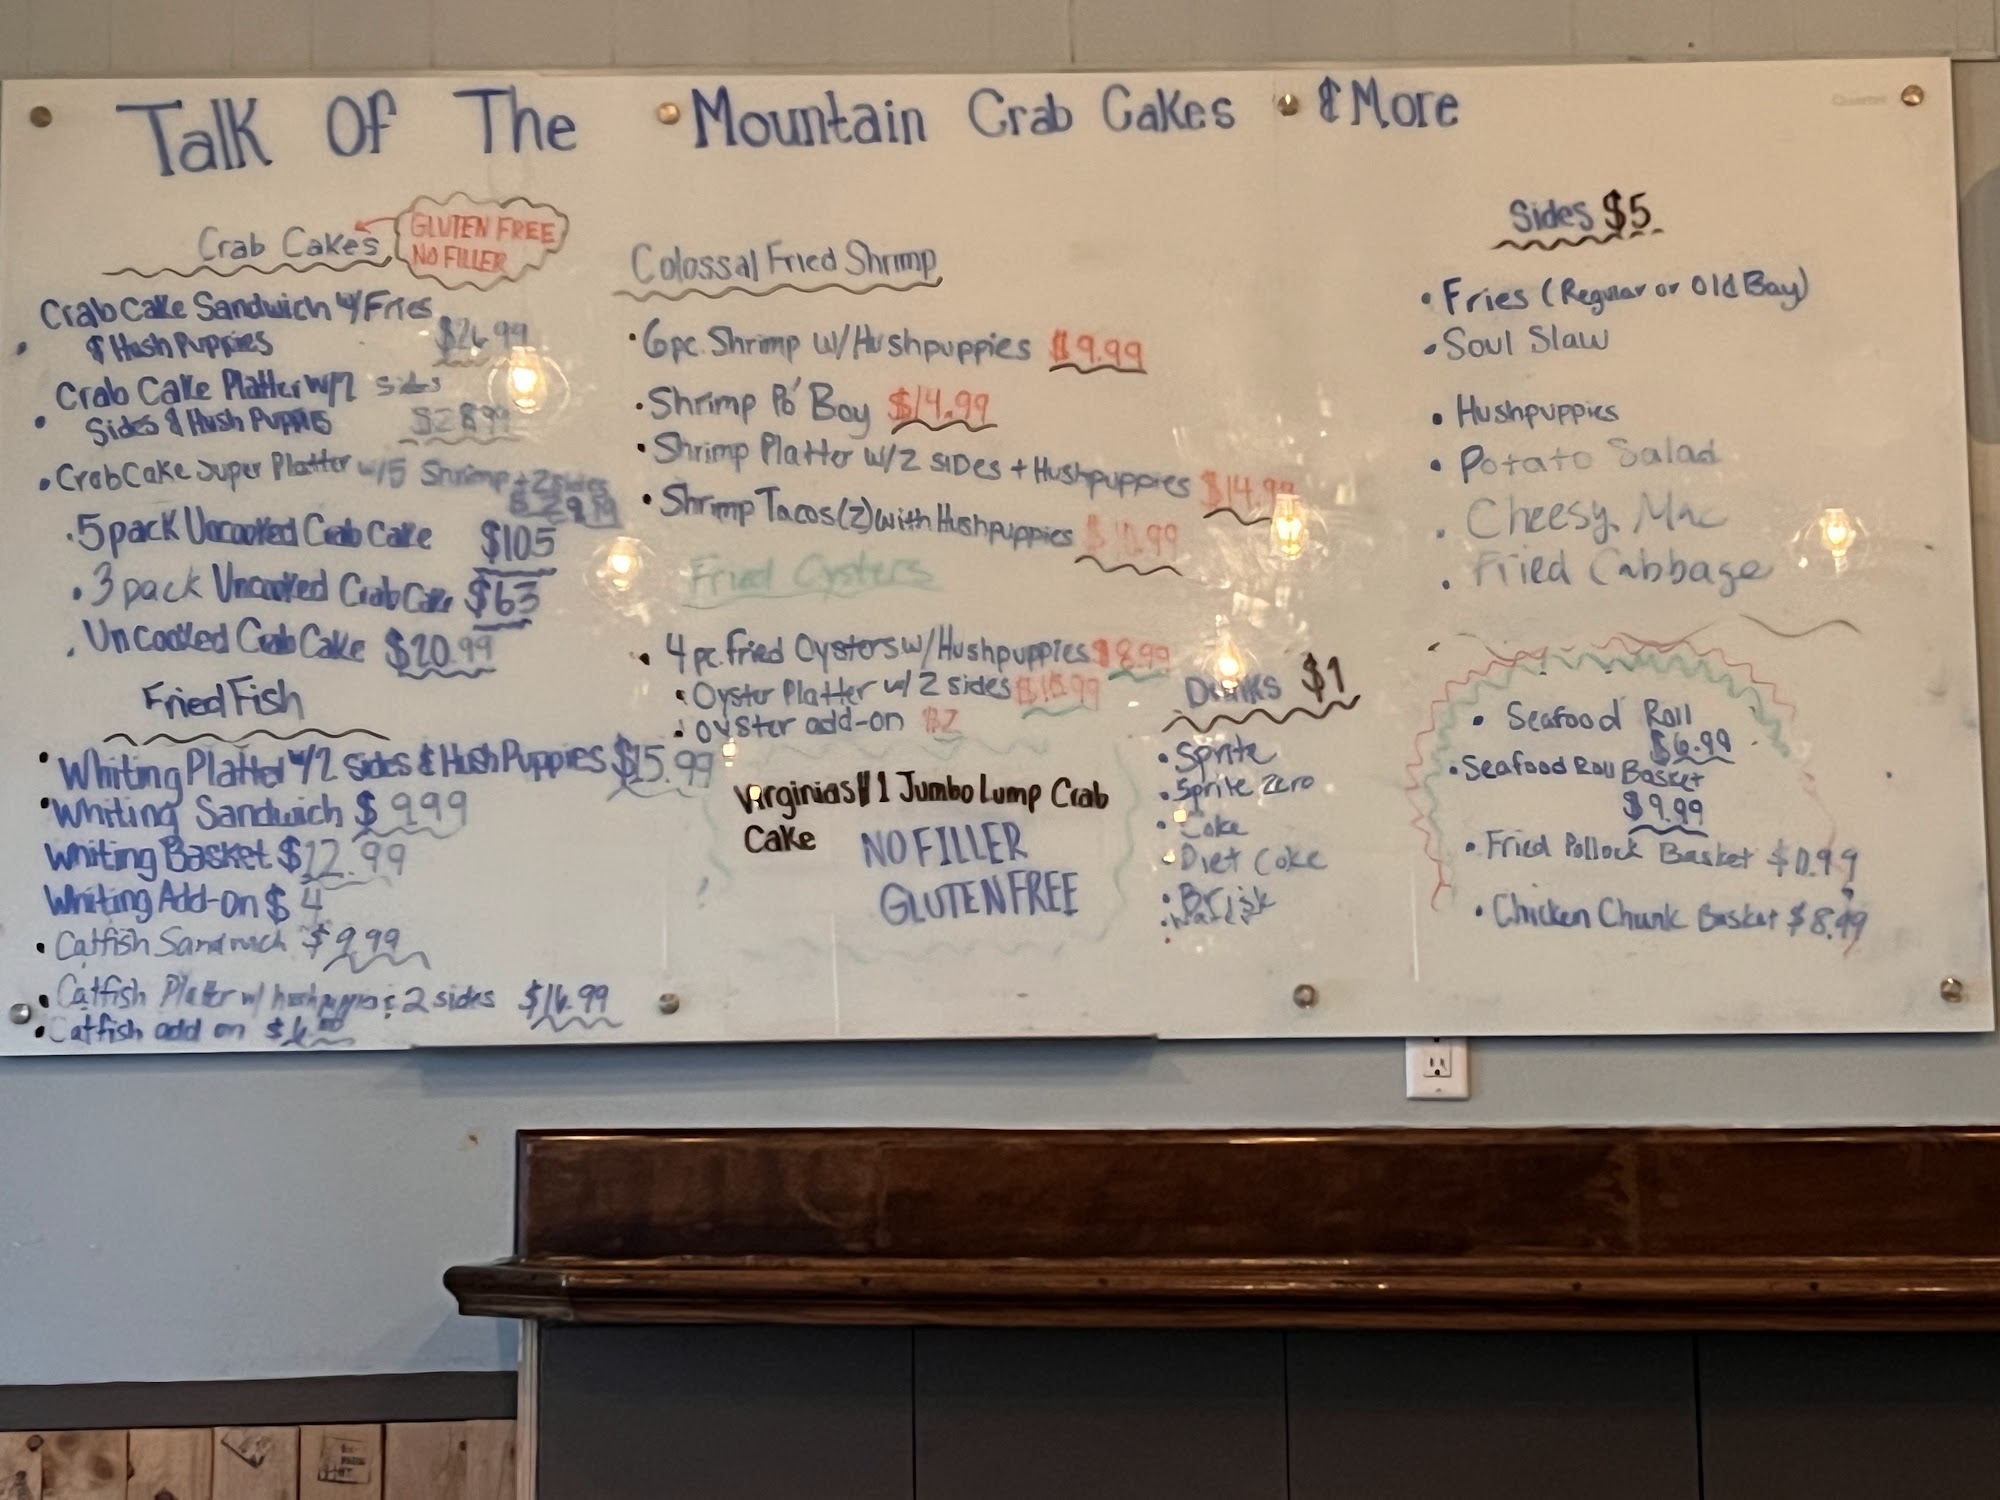 Talk Of The Mountain Crab Cakes & More
Crab Cakes
GLUTEN FREE
NO FILLER
Crab Cake Sandwich w/Fries
& Hush Puppies $26.99
Crab Cake Platter w/2 sides
Sides & Hush Puppies $28.99
Crab Cake Super Platter w/5 Shrimp + 2 sides
5 pack Uncooked Crab Cake $105
3 pack Uncooked Crab Cake $63
Uncooked Crab Cake $20.99
Fried Fish
Whiting Platter w/2 sides & Hush Puppies $15.99
Whiting Sandwich $9.99
Whiting Basket $12.99
Whiting Add-on $4
Catfish Sandwich $9.99
Catfish Platter w/ hushpuppies & 2 sides $16.99
Catfish add on
Colossal Fried Shrimp
6pc. Shrimp w/Hushpuppies $9.99
Shrimp Po' Boy $14.99
Shrimp Platter w/2 SIDES + Hushpuppies $14.99
Shrimp Tacos (2) with Hushpuppies $10.99
Fried Oysters
4 pc. fried Oysters w/Hushpuppies $8.99
Oyster Platter w/ 2 sides
Oyster add-on $2
Virginias #1 Jumbo Lump Crab
Cake
NO FILLER
GLUTEN FREE
Drinks $1
Sprite
Sprite Zero
Coke
Diet Coke
Brisk
Sides $5
Fries (Regular or Old Bay)
Soul Slaw
Hushpuppies
Potato Salad
Cheesy Mac
Fried Cabbage
Seafood Roll
$6.99
Seafood Roll Basket
$9.99
Fried Pollock Basket
Chicken Chunk Basket $8.99